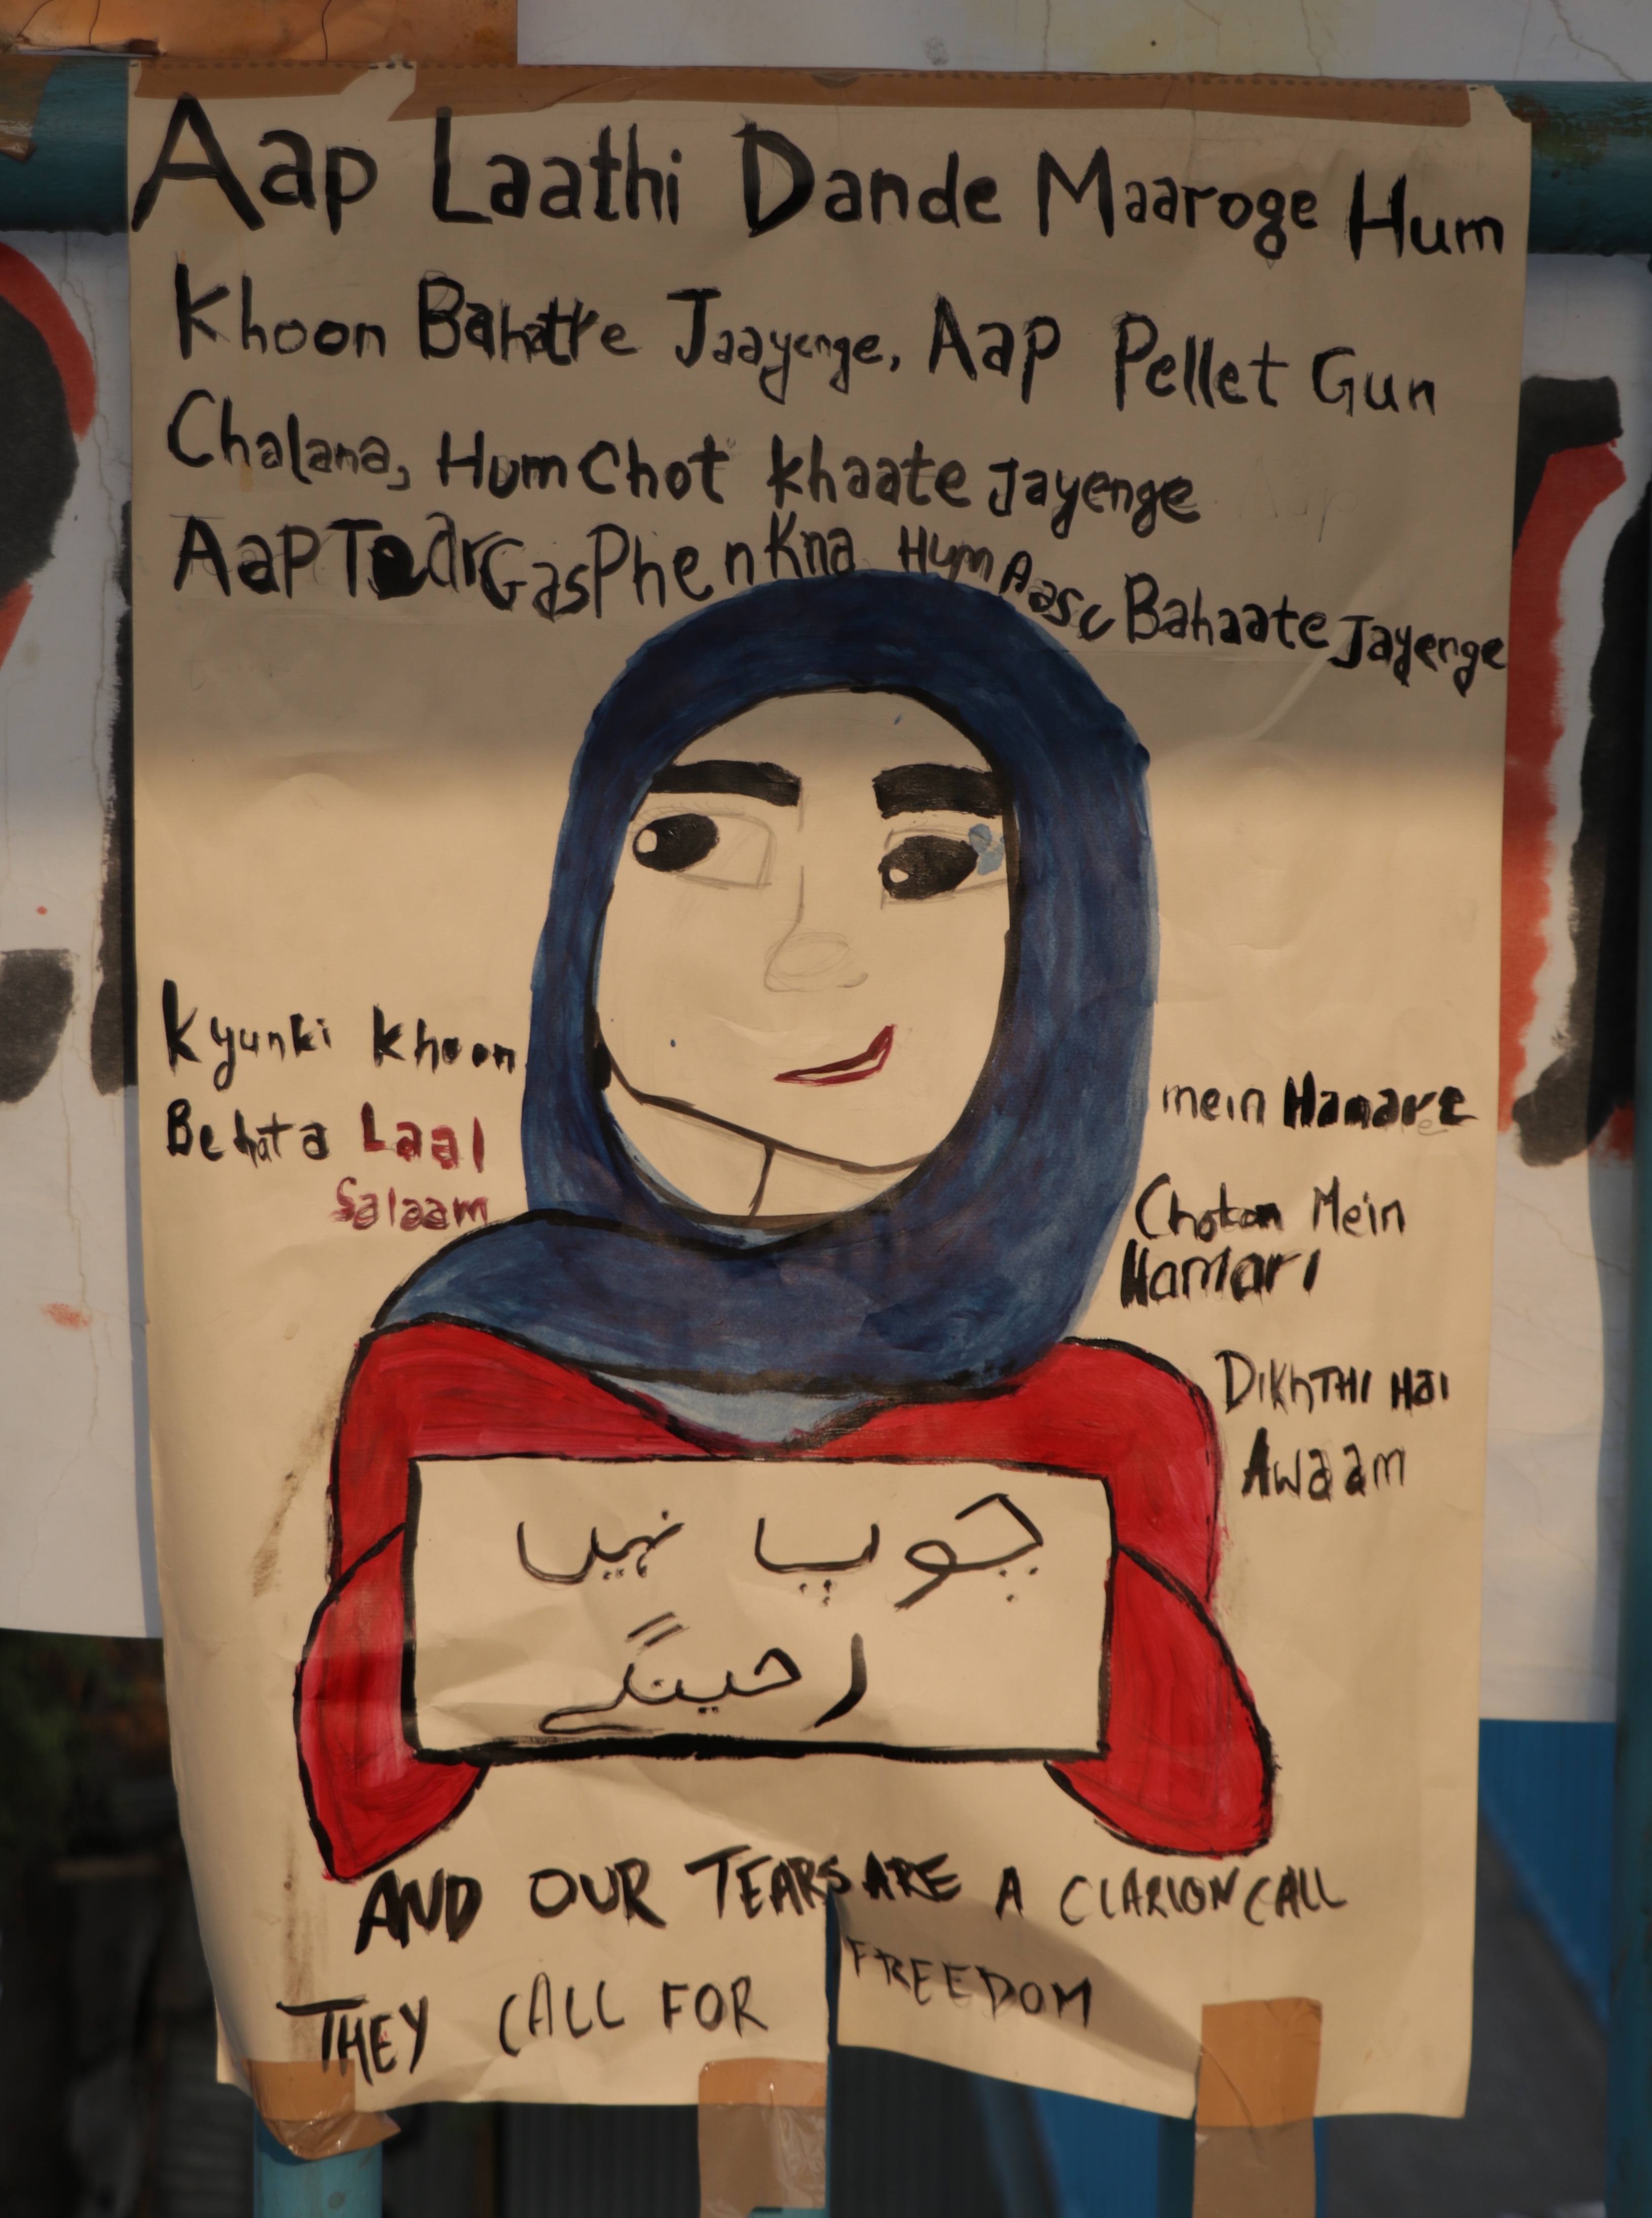 Aap Laathi Dande Maaroge Hum
Khoon Bahatte Jaayenge, Aap Pellet Gun
Chalana, Hum Chot Khaate Jayenge
Aap Tear Gas Phenkna Hum Aasu Bahaate Jayenge
Kyunki Khoon
mein Hamare
Behta Laal
Salaam
Choton Mein
Hamari
Dikhthi Hai
Awaam
چوپ نہیں
رحینگے
AND OUR TEARS ARE A CLARION CALL
THEY CALL FOR FREEDOM